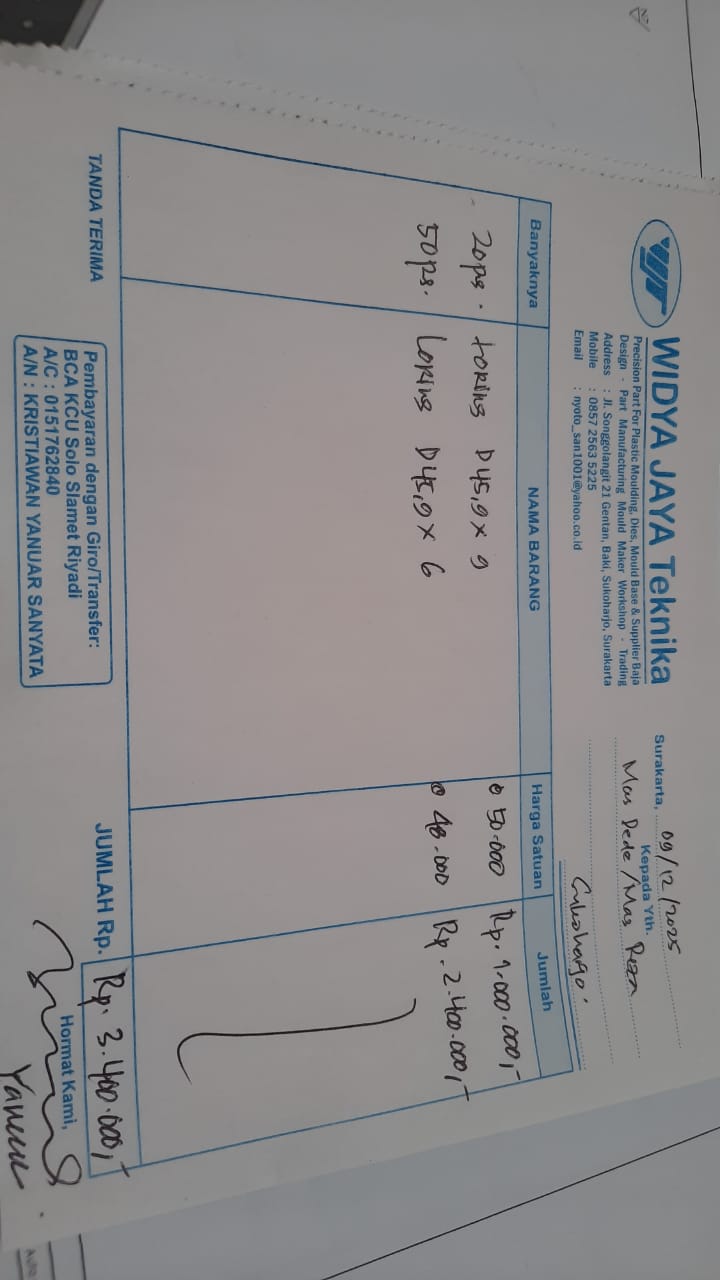 WIDYA JAYA Teknika
Precision Part For Plastic Moulding, Dies, Mould Base & Supplier Baja
Design - Part Manufacturing Mould Maker Workshop - Trading
Address : Jl. Songgolangit 21 Gentan, Baki, Sukoharjo, Surakarta
Mobile : 0857 2563 5225
Email : nyoto_san1001@yahoo.co.id
Surakarta, 09/12/2025
Kepada Yth.
Mas Dede /Mas
Banyaknya NAMA BARANG Harga Satuan Jumlah
20ps. D45,9 x 9 @ 50.000 Rp. 1.000.000,-
50ps. D45,9 x 6 @ 48.000 Rp. 2.400.000,-
JUMLAH Rp. Rp. 3.400.000,-
TANDA TERIMA
Pembayaran dengan Giro/Transfer:
BCA KCU Solo Slamet Riyadi
A/C : 0151762840
A/N : KRISTIAWAN YANUAR SANYATA
Hormat Kami,